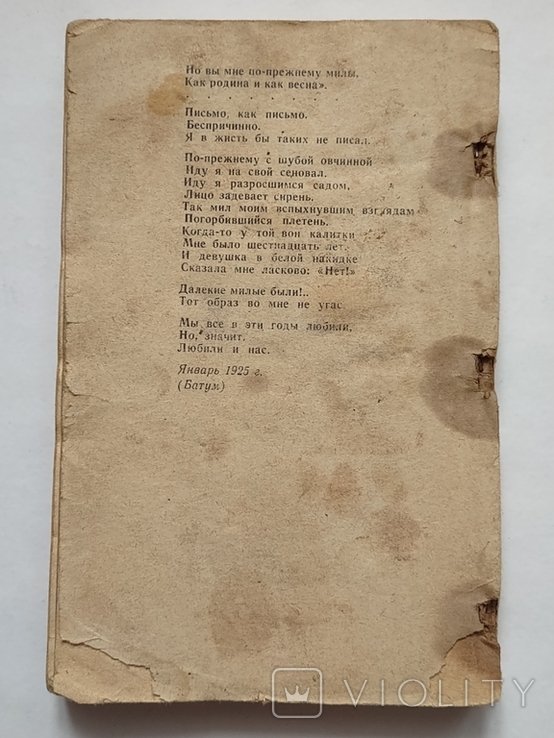 Но вы мне по-прежнему милы,
Как родина и как весна».
. . . . . . . . . . . .
Письмо, как письмо.
Беспричинно.
Я в жисть бы таких не писал.
По-прежнему с шубой овчинной
Иду я на свой сеновал.
Иду я разросшимся садом,
Лицо задевает сирень.
Так мил моим вспыхнувшим взглядам
Погорбившийся плетень.
Когда-то у той вон калитки
Мне было шестнадцать лет.
И девушка в белой накидке
Сказала мне ласково: «Нет!»
Далекие милые были!..
Тот образ во мне не угас.
Мы все в эти годы любили,
Но, значит,
Любили и нас.
Январь 1925 г.
(Батум)
VIOLITY